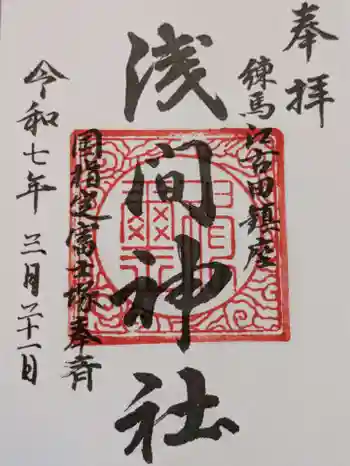 奉拝
練馬江古田鎮座
浅間神社
国指定富士塚奉斎
令和七年三月二十一日